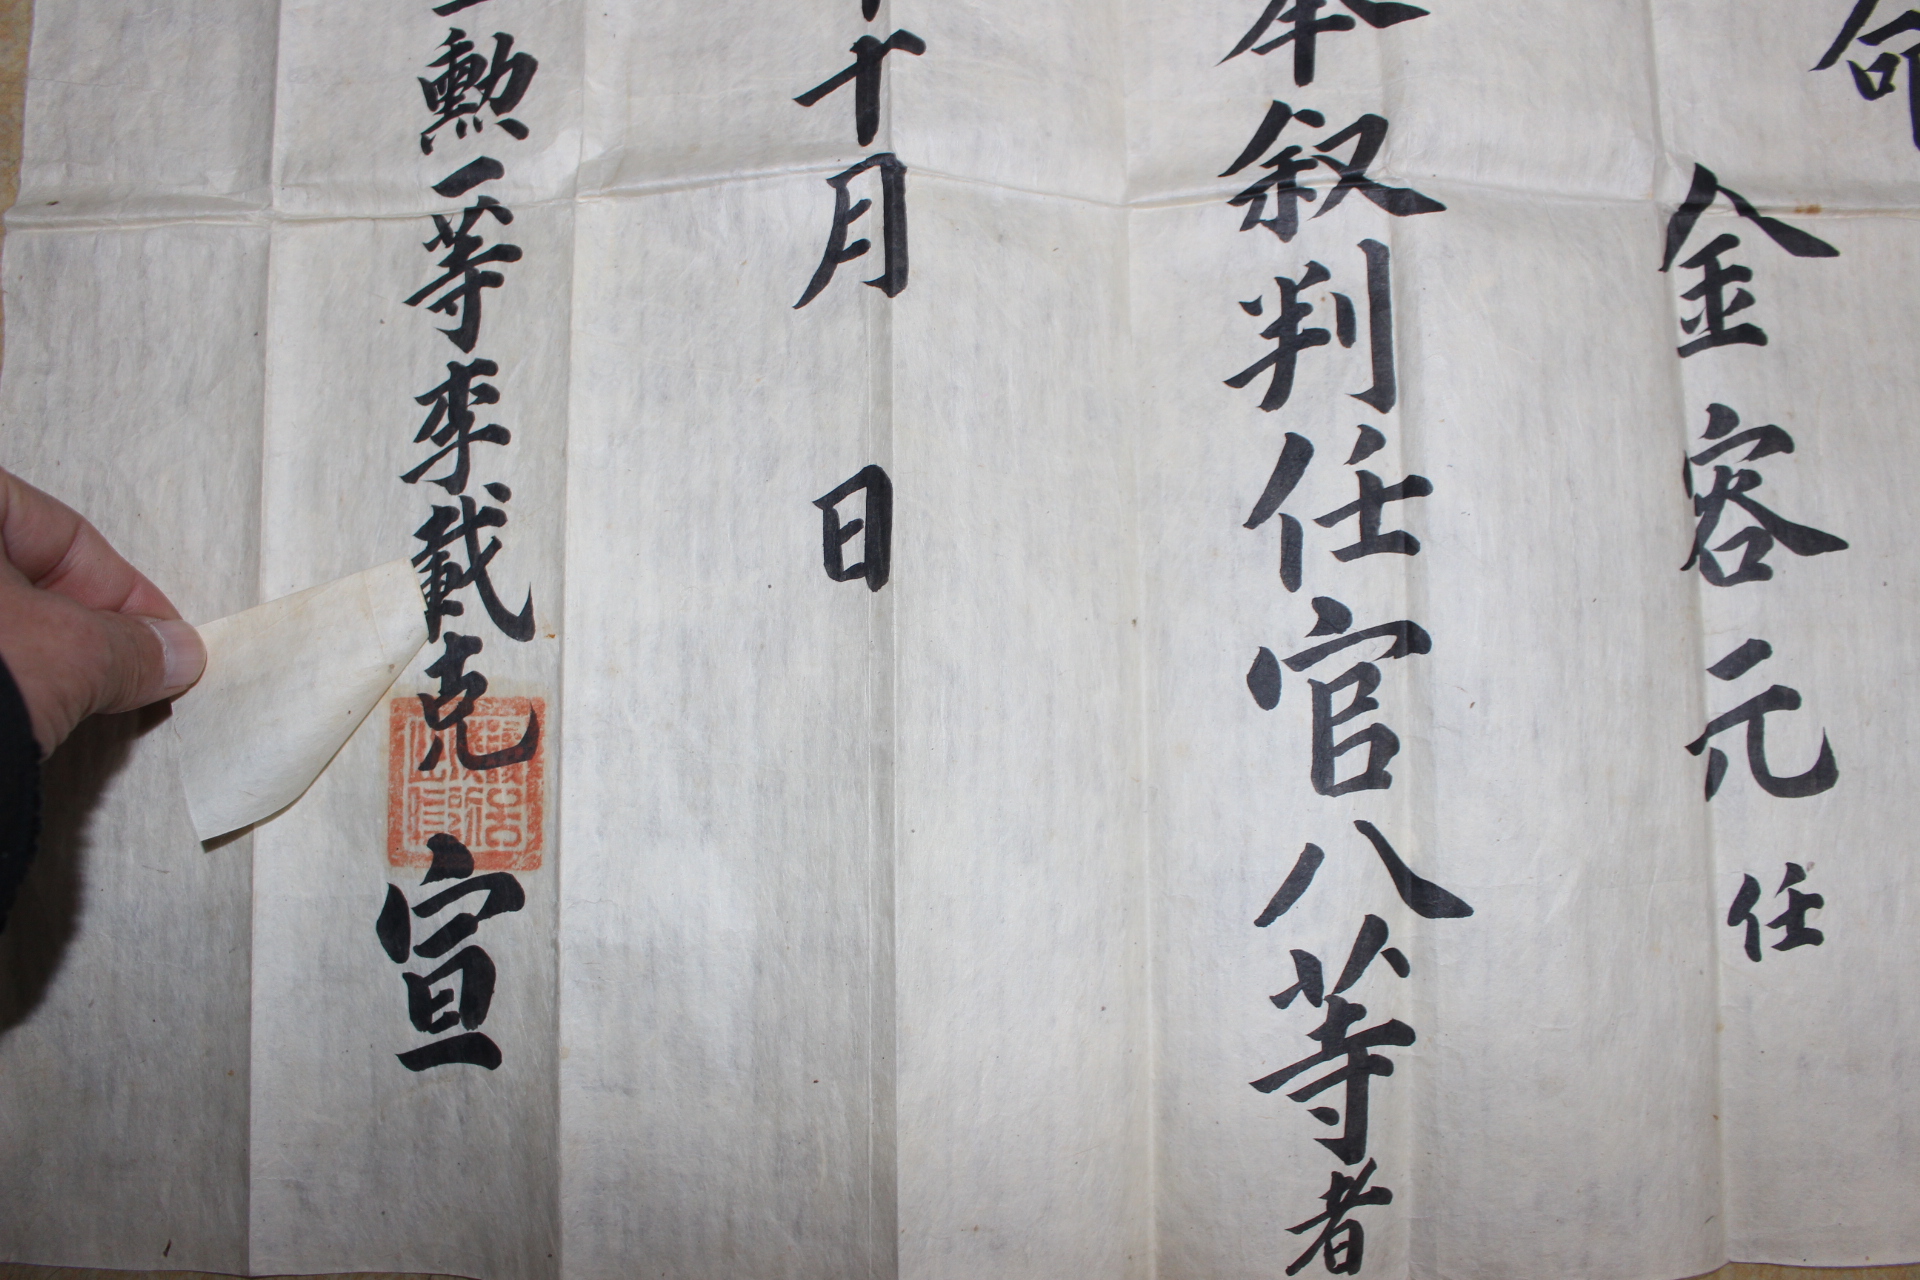 命
金容元任
叙判任官八等者
十月 日
勲一等李載克宣